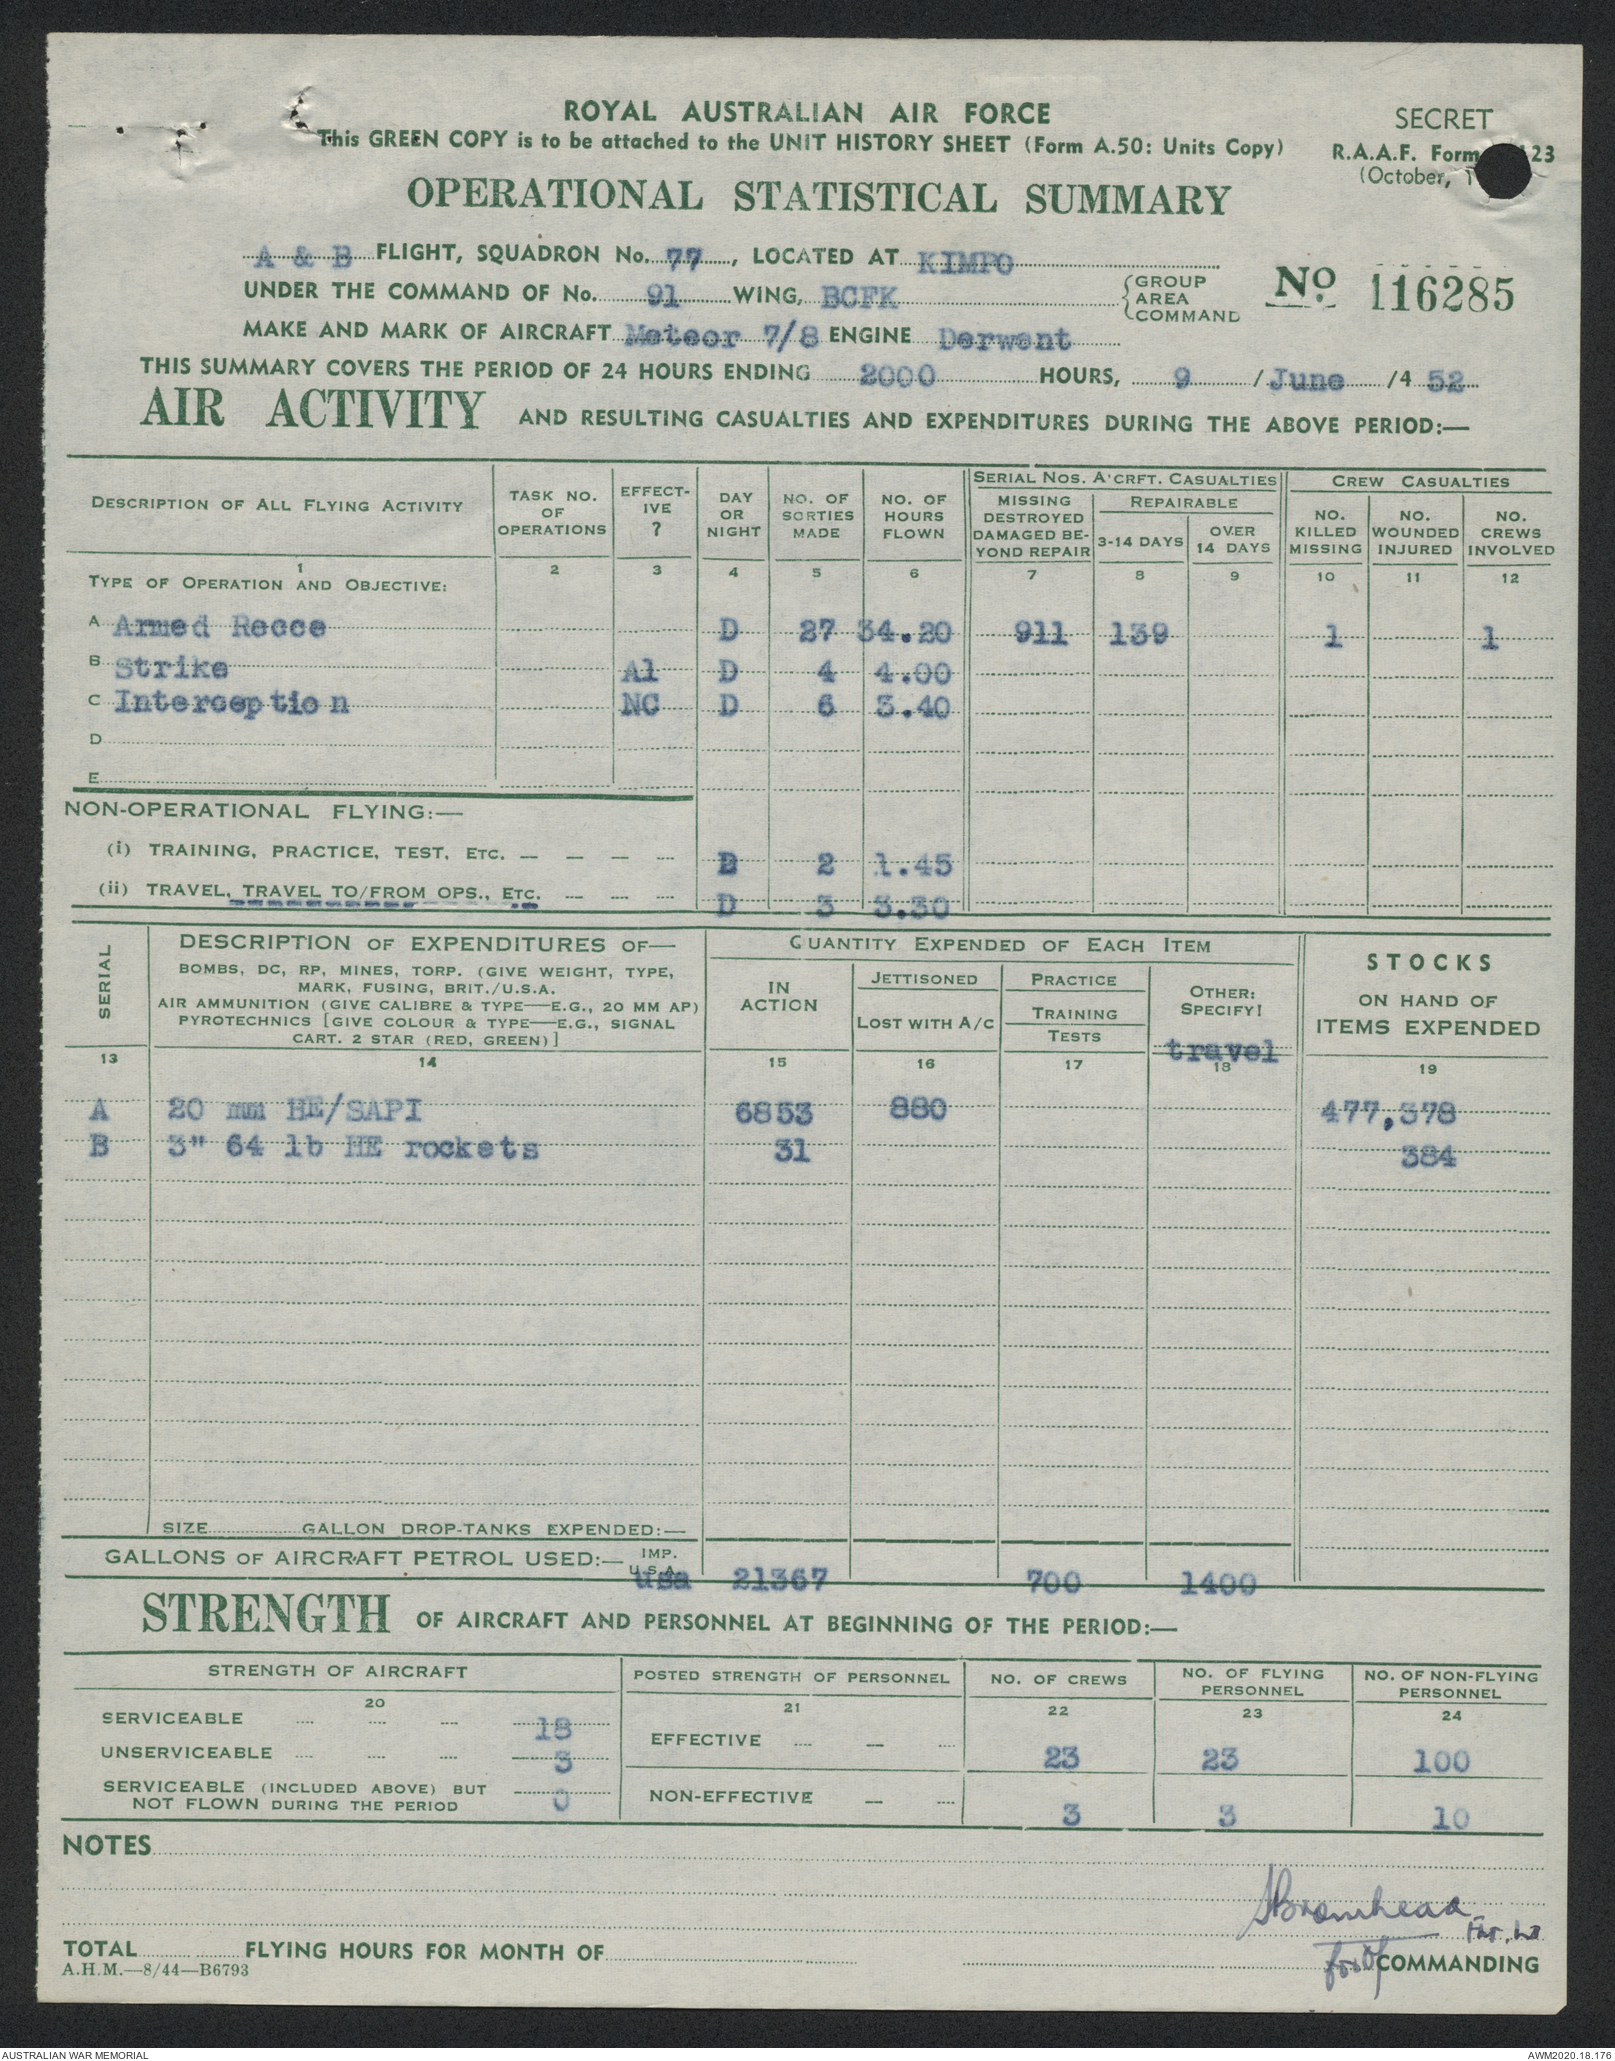 ROYAL AUSTRALIAN AIR FORCE
This GREEN COPY is to be attached to the UNIT HISTORY SHEET (Form A.50: Units Copy)
SECRET
R.A.A.F. Form 23
(October, 1
OPERATIONAL STATISTICAL SUMMARY
A & B FLIGHT, SQUADRON No. 77, LOCATED AT KIMPO
UNDER THE COMMAND OF No. 91 WING, BCFK {GROUP AREA COMMAND
No 116285
MAKE AND MARK OF AIRCRAFT Meteor 7/8 ENGINE Derwent
THIS SUMMARY COVERS THE PERIOD OF 24 HOURS ENDING 2000 HOURS, 9 / June /4 52
AIR ACTIVITY AND RESULTING CASUALTIES AND EXPENDITURES DURING THE ABOVE PERIOD:—
DESCRIPTION OF ALL FLYING ACTIVITY
TASK NO. OF OPERATIONS
EFFECT-IVE ?
DAY OR NIGHT
NO. OF SORTIES MADE
NO. OF HOURS FLOWN
SERIAL NOS. A'CRFT. CASUALTIES
MISSING DESTROYED DAMAGED BE-YOND REPAIR
REPAIRABLE
3-14 DAYS
OVER 14 DAYS
CREW CASUALTIES
NO. KILLED MISSING
NO. WOUNDED INJURED
NO. CREWS INVOLVED
1 2 3 4 5 6 7 8 9 10 11 12
TYPE OF OPERATION AND OBJECTIVE:
A Armed Recce D 27 34.20 911 139 1 1
B Strike A1 D 4 4.00
C Interception NC D 6 3.40
D
E
NON-OPERATIONAL FLYING:—
(i) TRAINING, PRACTICE, TEST, ETC. — — — — D 2 1.45
(ii) TRAVEL, TRAVEL TO/FROM OPS., ETC. — — — D 3 3.30
SERIAL
DESCRIPTION OF EXPENDITURES OF—
BOMBS, DC, RP, MINES, TORP. (GIVE WEIGHT, TYPE,
MARK, FUSING, BRIT./U.S.A.
AIR AMMUNITION (GIVE CALIBRE & TYPE—E.G., 20 MM AP)
PYROTECHNICS [GIVE COLOUR & TYPE—E.G., SIGNAL
CART. 2 STAR (RED, GREEN)]
QUANTITY EXPENDED OF EACH ITEM
IN ACTION
JETTISONED
LOST WITH A/C
PRACTICE
TRAINING
TESTS
OTHER: SPECIFY!
travel
STOCKS
ON HAND OF
ITEMS EXPENDED
13 14 15 16 17 18 19
A 20 mm HE/SAPI 6853 880 477,378
B 3" 64 lb HE rockets 31 384
SIZE GALLON DROP-TANKS EXPENDED:—
GALLONS OF AIRCRAFT PETROL USED:— IMP. U.S.A. usa 21367 700 1400
STRENGTH OF AIRCRAFT AND PERSONNEL AT BEGINNING OF THE PERIOD:—
STRENGTH OF AIRCRAFT
POSTED STRENGTH OF PERSONNEL
NO. OF CREWS
NO. OF FLYING PERSONNEL
NO. OF NON-FLYING PERSONNEL
20 21 22 23 24
SERVICEABLE .... .... — 18
UNSERVICEABLE .... .... — 3
SERVICEABLE (INCLUDED ABOVE) BUT
NOT FLOWN DURING THE PERIOD 0
EFFECTIVE .... — .... 23 23 100
NON-EFFECTIVE — .... 3 3 10
NOTES
SBromhead
Flt. Lt
TOTAL FLYING HOURS FOR MONTH OF
for Of COMMANDING
A.H.M.—8/44—B6793
AUSTRALIAN WAR MEMORIAL
AWM2020.18.176